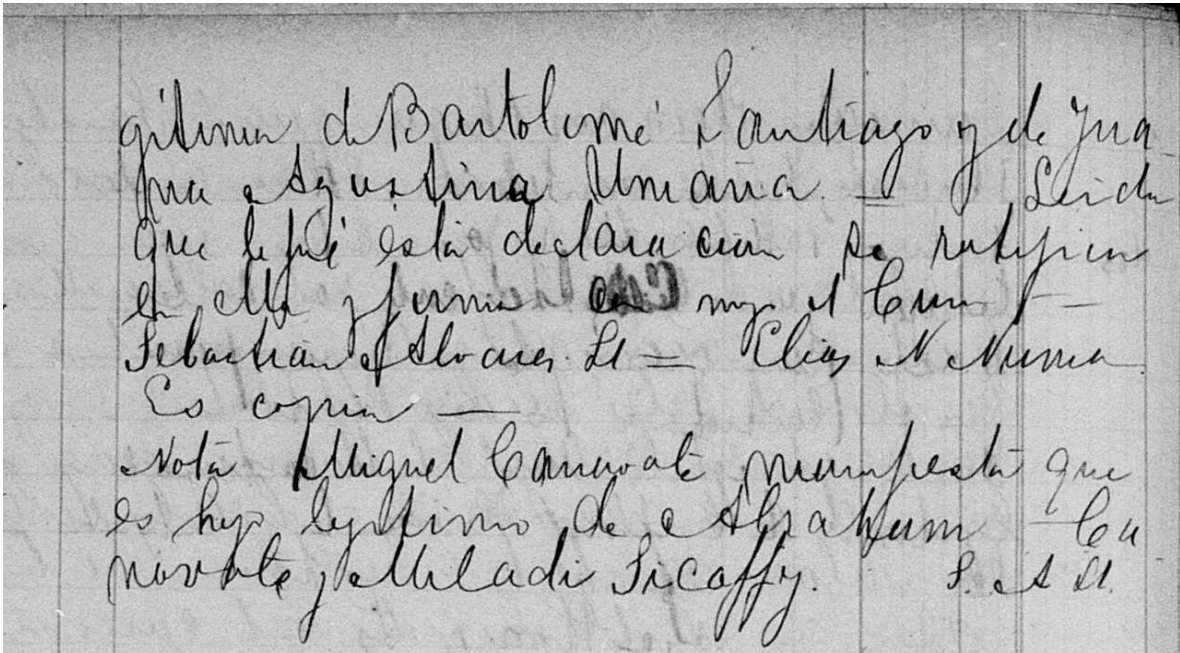 gitima de Bartolomé Santiago y de Jua
na Agustina Umaña. = Leida
que le fué esta declaracion se ratifica
en ella y firma con migo el Cura —
Sebastian Alvares. U = Elias N Numa
Es copia —
Nota Miguel Canavate manifesta que
es hijo legitimo de Abraham Ca
navate y Miladi Sicaffy. S. A U.